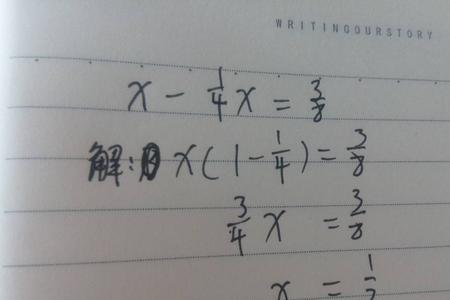 WRITINGOURSTORY
x - 1/4 x = 3/8
解: x(1 - 1/4) = 3/8
3/4 x = 3/8
x = 1/